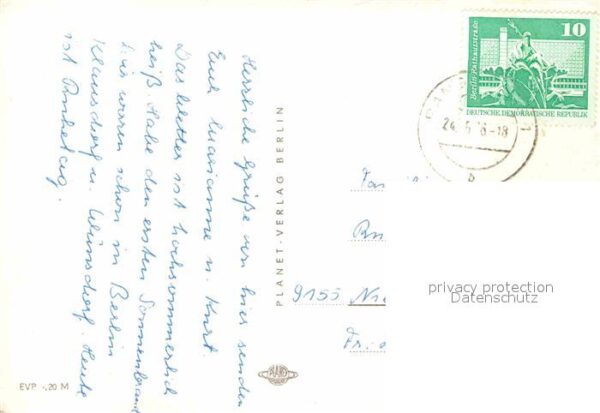 Herzliche Grüße von hier senden
Euch Marianne u. Kurt.
Das Wetter ist hochsommerlich
heiß. Habe den ersten Sonnenbrand
wir waren schon in Berlin
Klausdorf u. Wünsdorf. Heute
ist Ruhetag.
PLANET-VERLAG BERLIN
EVP -.20 M
PLANET
10
Berlin, Rathausstraße
DEUTSCHE DEMOKRATISCHE REPUBLIK
24. 6 -18
b
Fa
9155 Ni
privacy protection
Datenschutz